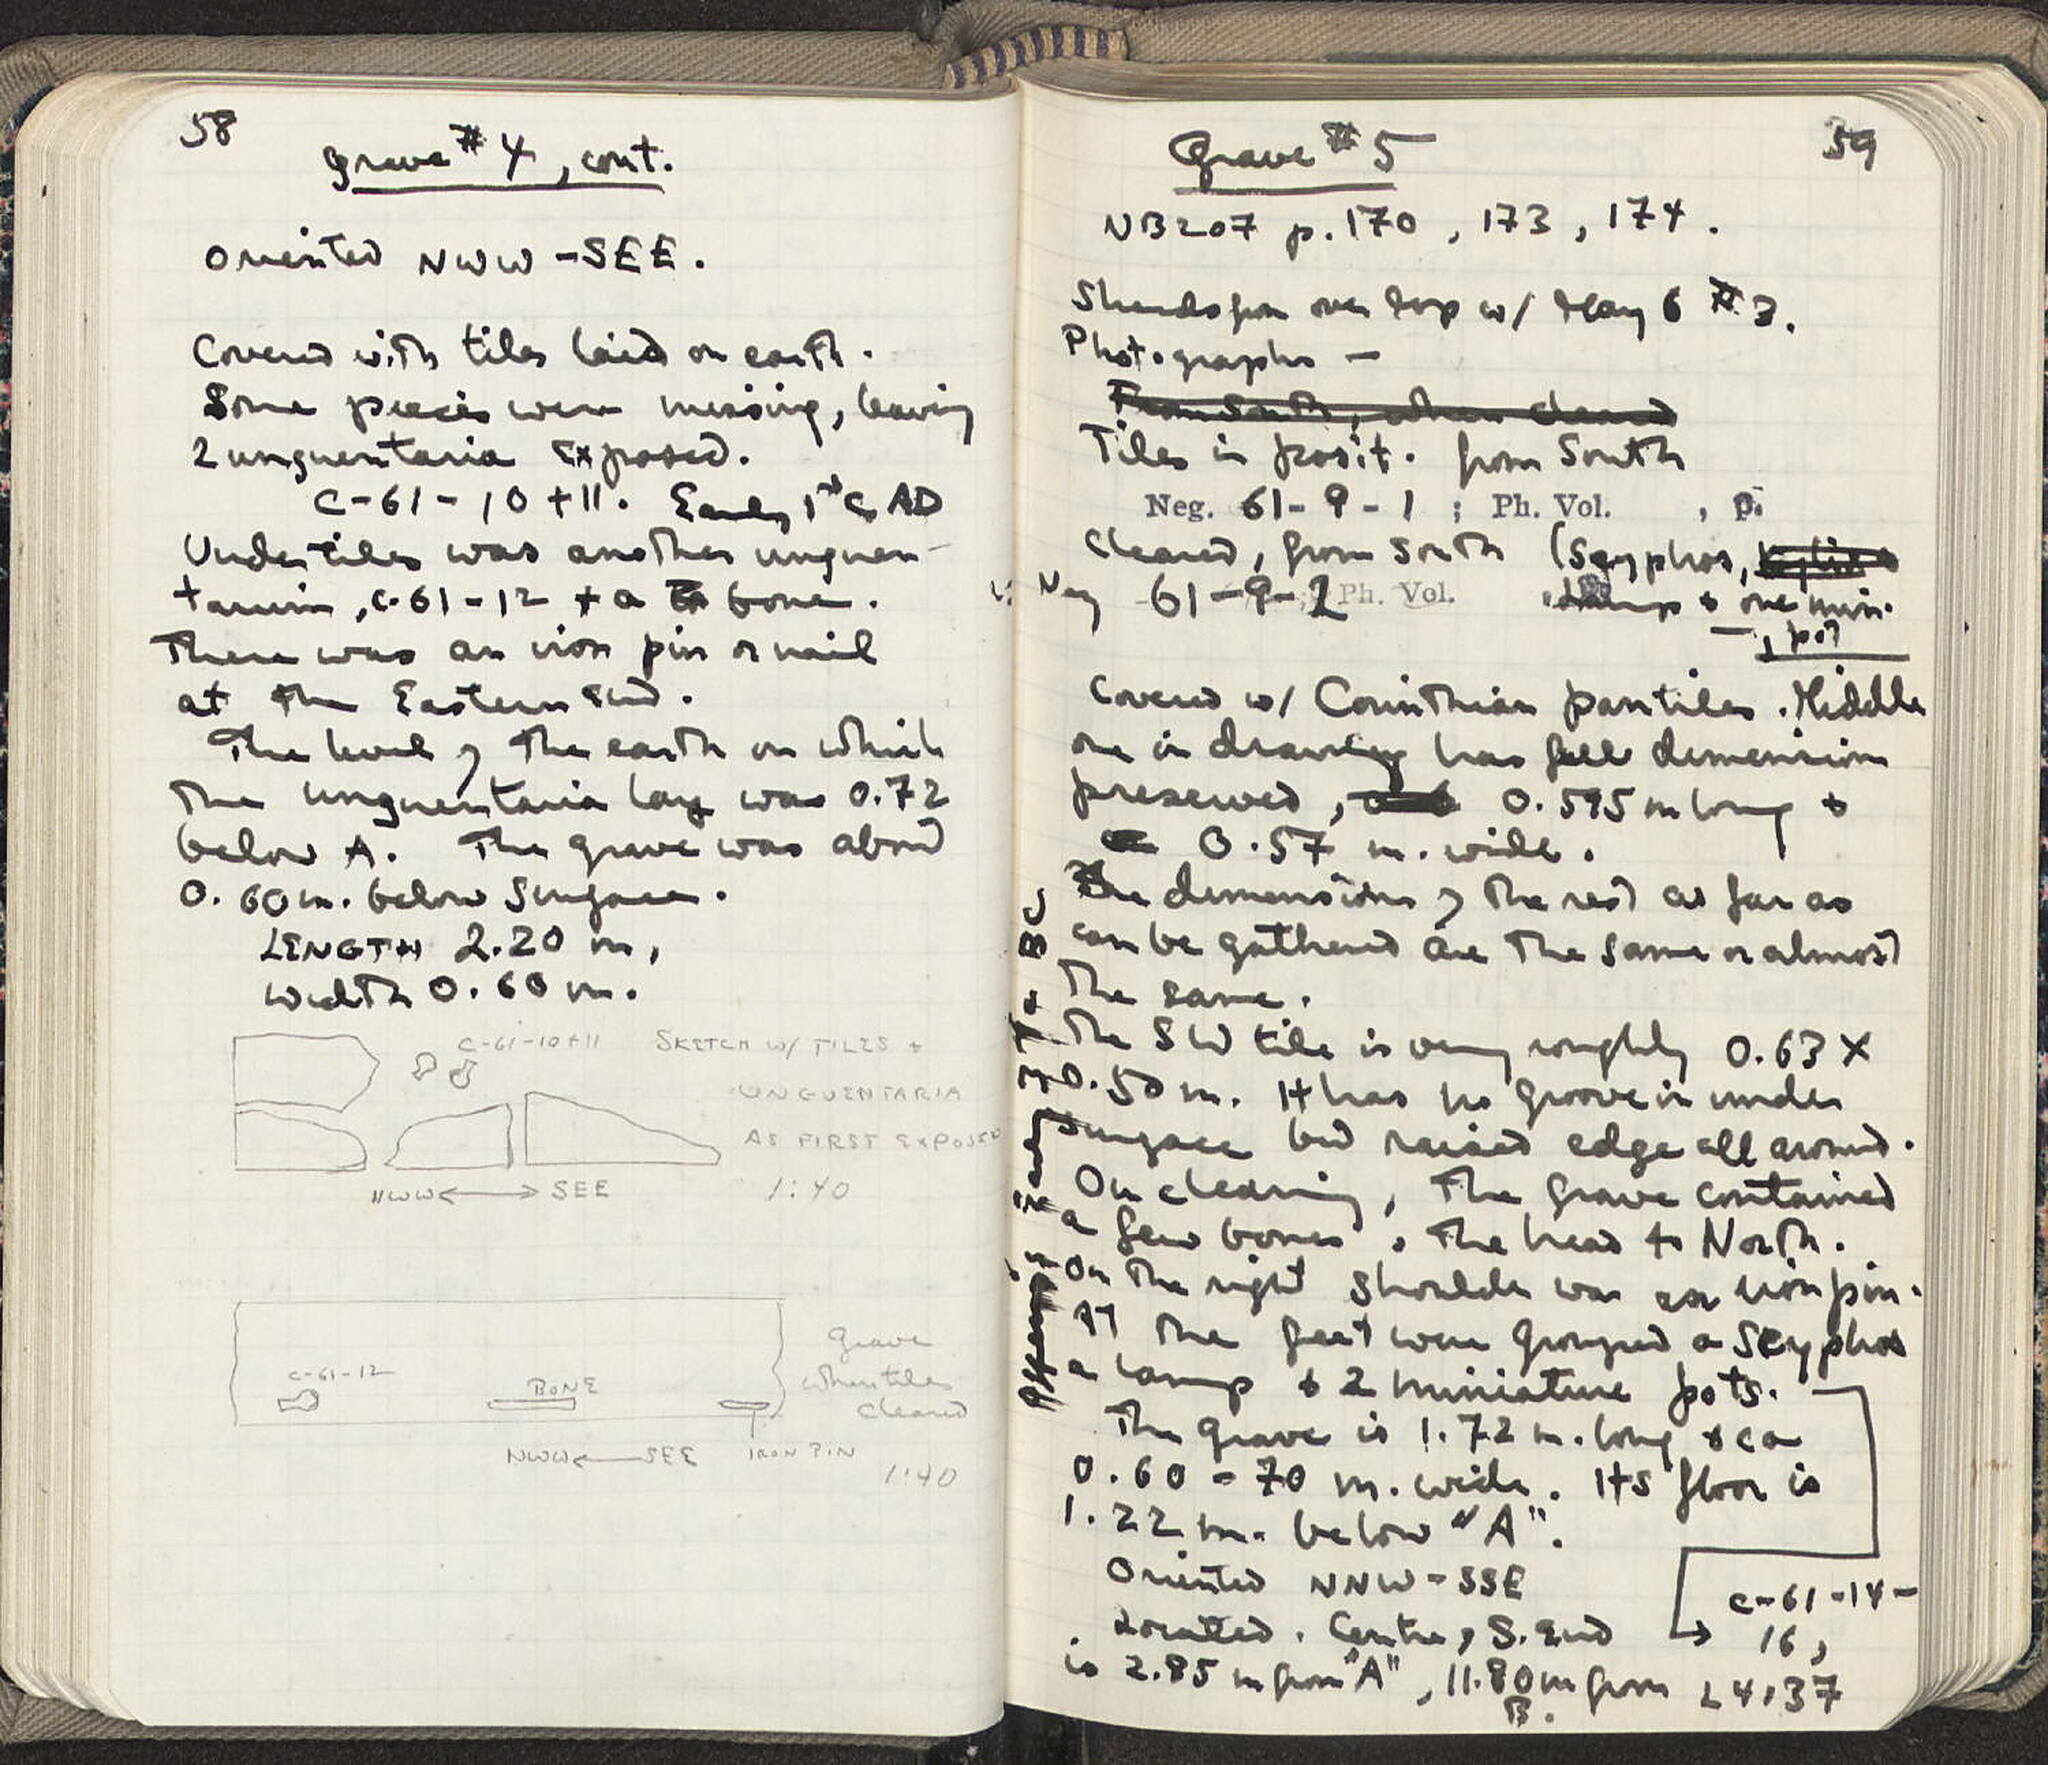 58
Grave # 4, cont.
Oriented NWW - SEE.
Covered with tiles laid on earth.
Some pieces were missing, leaving
2 unguentaria exposed.
C-61-10 + 11. Early 1st C AD
Under tiles was another unguen-
tarium, C-61-12 + a bone.
There was an iron pin or nail
at the Eastern end.
The level of the earth on which
the unguentaria lay was 0.72
below A. The grave was about
0.60 m. below surface.
LENGTH 2.20 m,
width 0.60 m.
C-61-10+11
SKETCH W/ TILES +
UNGUENTARIA
AS FIRST EXPOSED
NWW SEE
1:40
C-61-12
BONE
Grave
when tiles
cleared
NWW SEE
IRON PIN
1:40
59
Grave # 5
NB 207 p. 170, 173, 174.
Sherds from over top w/ May 6 # 3.
Photographs -
From South, when cleared
Tiles in posit. from South
Neg. 61-9-1 ; Ph. Vol. , p.
Cleared, from South (Scyphos,
Neg 61-9-2 Ph. Vol. lamp + one min.
pot
Covered w/ Corinthian pantiles. Middle
one in drawing has full dimension
preserved, 0.595 m long +
0.57 m. wide.
The dimensions of the rest as far as
can be gathered are the same or almost
the same.
The SW tile is very roughly 0.63 x
0.50 m. It has no groove in under
surface but raised edge all around.
On cleaning, the grave contained
a few bones, the head to North.
On the right shoulder was an iron pin.
At the feet were grouped a scyphos
a lamp + 2 miniature pots.
The grave is 1.72 m. long + ca
0.60 - 70 m. wide. Its floor is
1.22 m. below "A".
Oriented NNW - SSE
C-61-14-
16,
Located. Centre, S. end
is 2.85 m from "A", 11.80 m from L4,37
B.
Early 3rd/4 BC